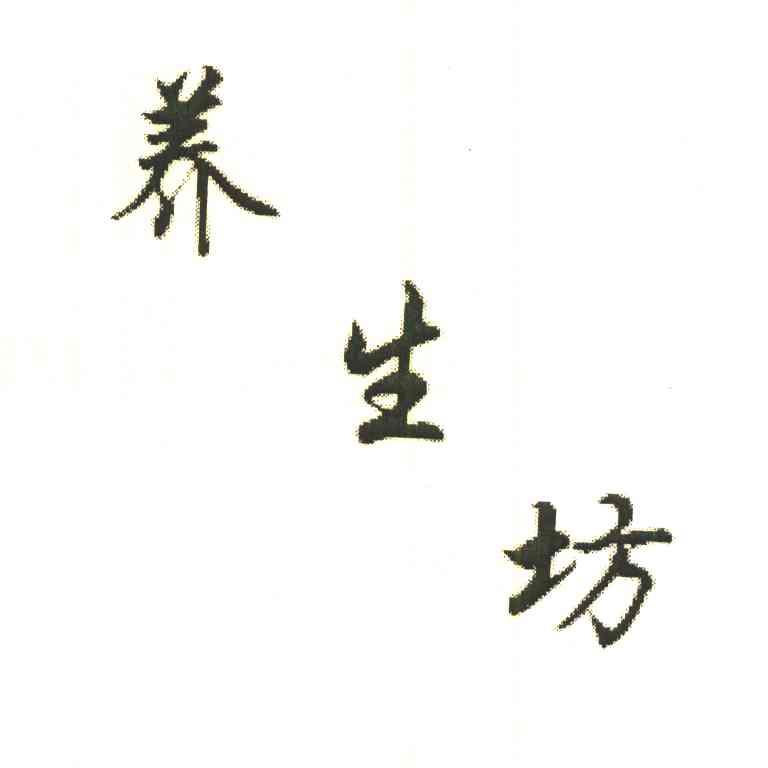 养生坊